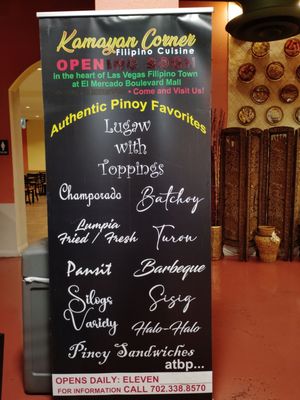 Kamayan Corner
Filipino Cuisine
OPENING SOON
in the heart of Las Vegas Filipino Town
at El Mercado Boulevard Mall
• Come and Visit Us!
Authentic Pinoy Favorites
Lugaw
with
Toppings
Champorado Batchoy
Lumpia
Fried / Fresh Turon
Pansit Barbeque
Silogs
Variety Sisig
Halo-Halo
Pinoy Sandwiches
atbp...
OPENS DAILY: ELEVEN
FOR INFORMATION CALL 702.338.8570